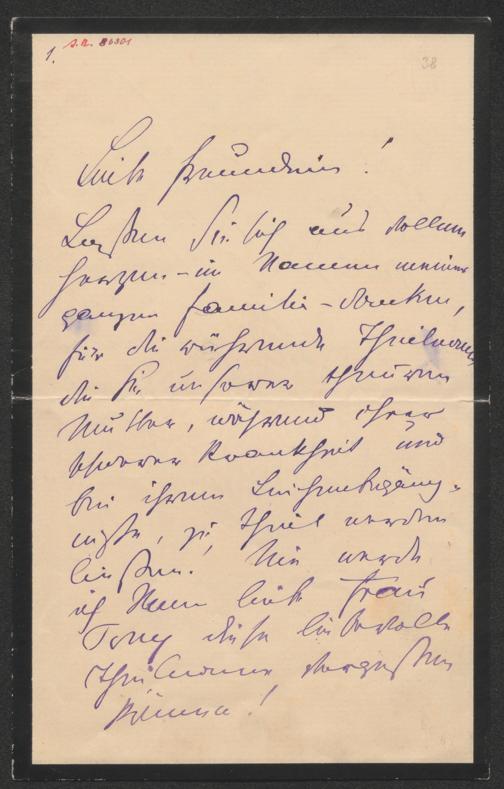 1.
J.N. 86301
38
Liebe Freundin!
Laßen Sie sich aus vollem
Herzen – im Namen meiner
ganzen Familie – danken,
für die rührende Theilnahme
die Sie unserer theuren
Mutter, während ihrer
schweren Krankheit und
bei ihrem Leichenbegäng-
niße, zu Theil werden
ließen. Nie werde
ich Ihnen liebe Frau
Tony diese liebevolle
Theilnahme vergeßen
können!